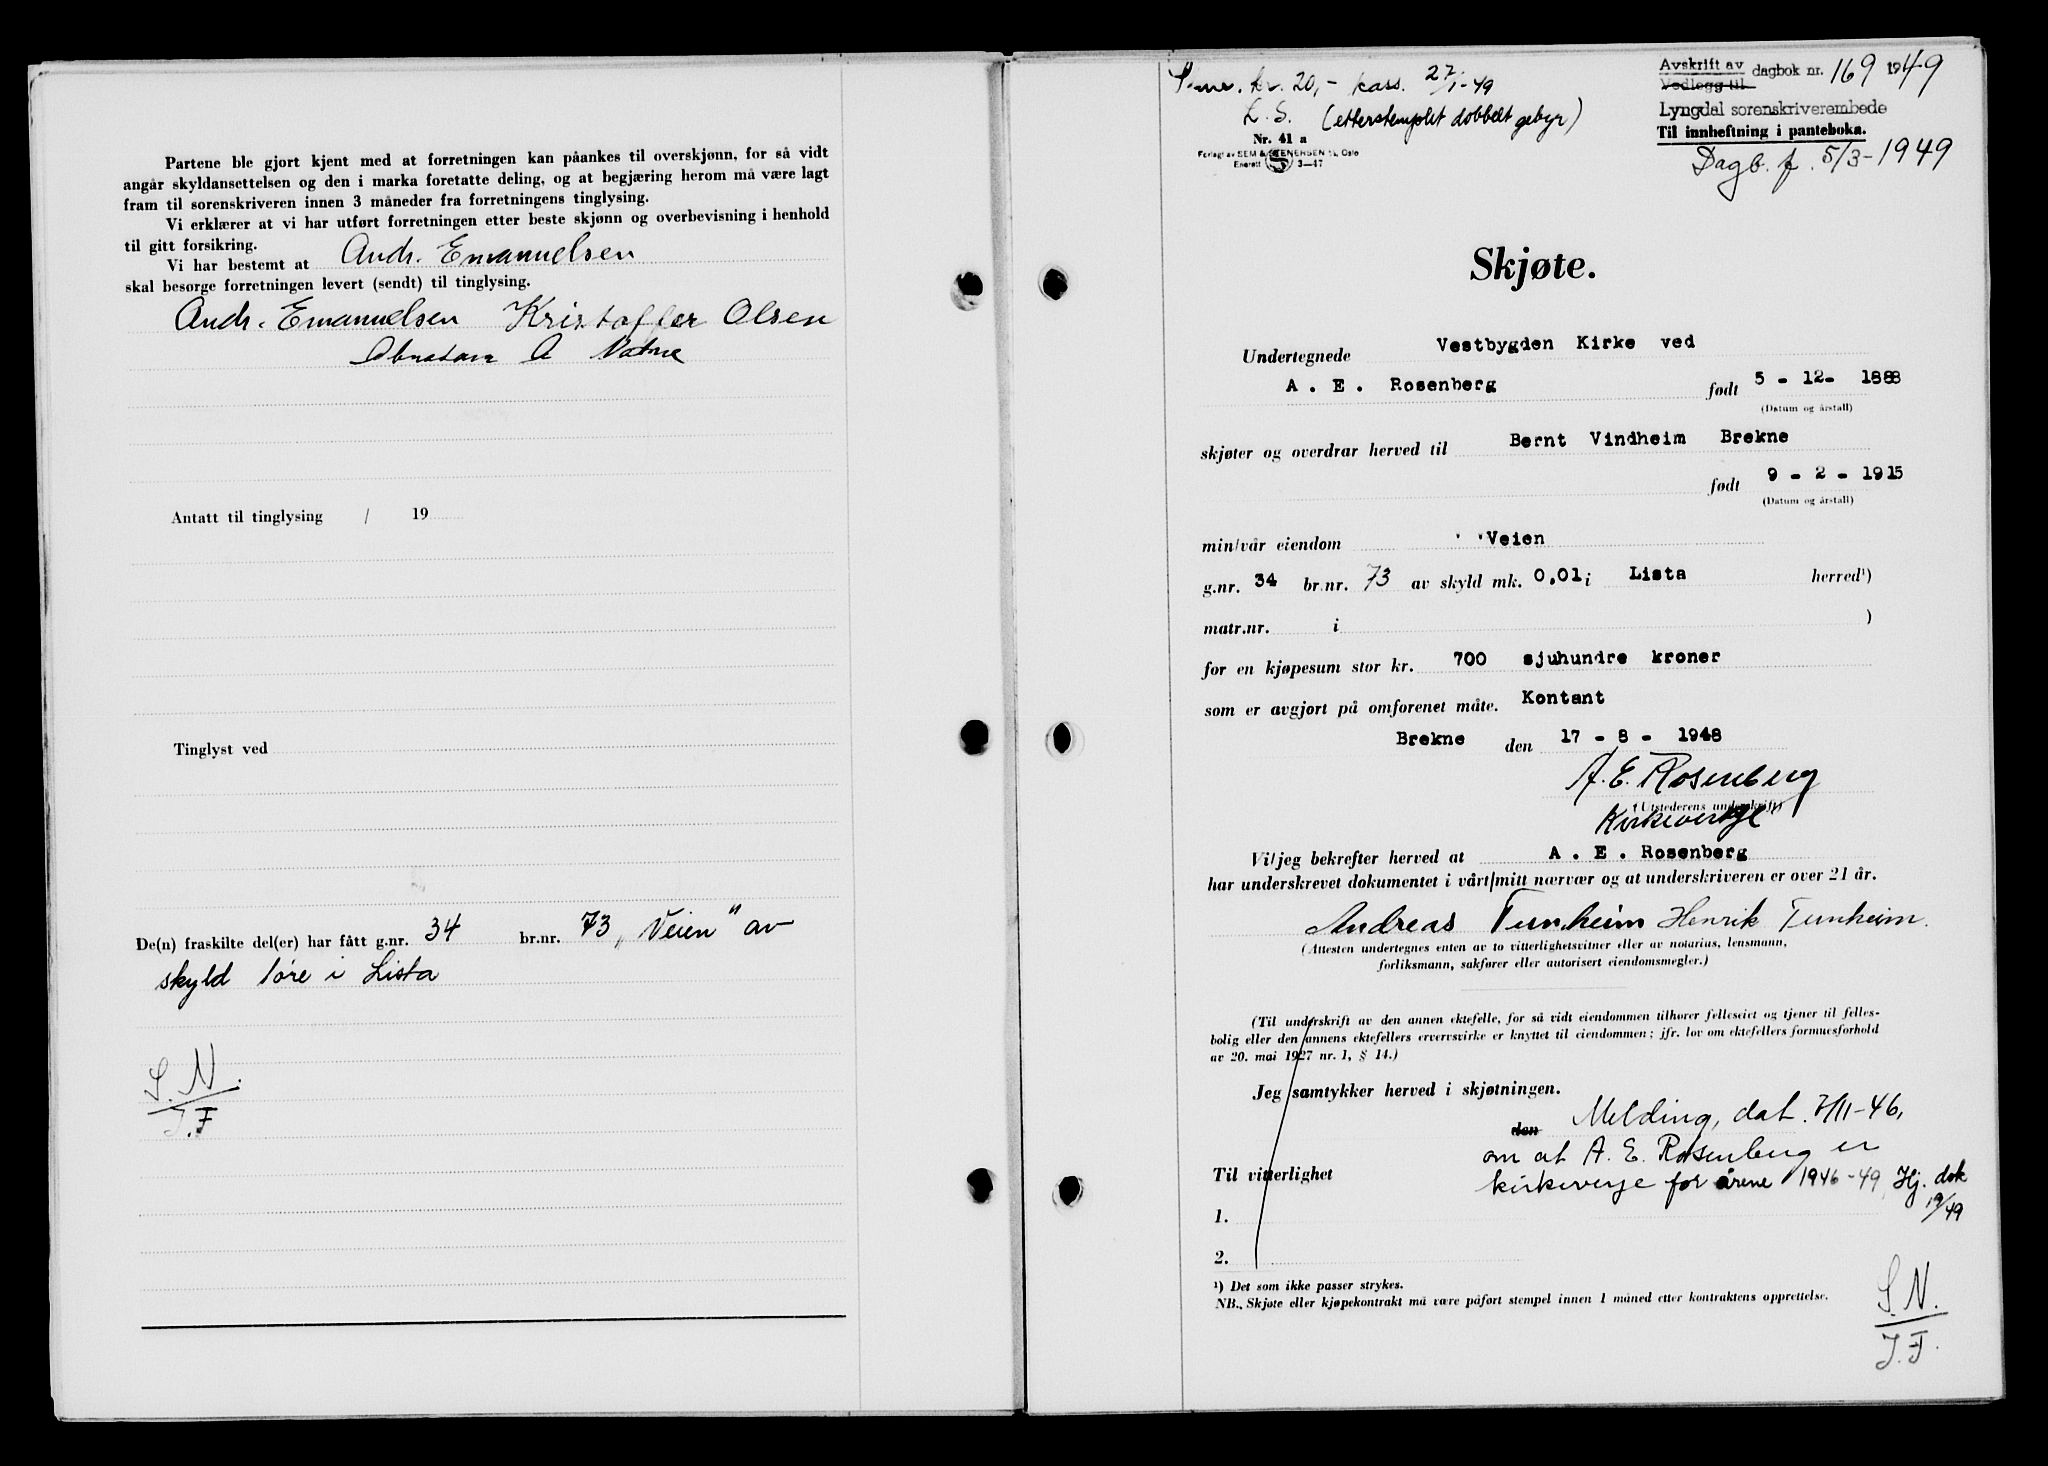 Partene ble gjort kjent med at forretningen kan påankes til overskjønn, for så vidt
angår skyldansettelsen og den i marka foretatte deling, og at begjæring herom må være lagt
fram til sorenskriveren innen 3 måneder fra forretningens tinglysing.
Vi erklærer at vi har utført forretningen etter beste skjønn og overbevisning i henhold
til gitt forsikring.
Vi har bestemt at Andr. Emanuelsen
skal besørge forretningen levert (sendt) til tinglysing.
Andr. Emanuelsen Kristoffer Olsen
A
Antatt til tinglysing / 19
Tinglyst ved
De(n) fraskilte del(er) har fått g.nr. 34 br.nr. 73 „Veien" av
skyld 1øre i Lista
S. N.
J. F
kr. 20,- kass. 27/1-49
L. S. (etterstemplet dobbelt gebyr)
Nr. 41 a
Forlag av SEM & STENERSEN A/S, Oslo
Enerett S 3—47
Avskrift av
Vedlegg til dagbok nr. 169 1949
Lyngdal sorenskriverembede
Til innheftning i panteboka.
Dagb. f. 5/3-1949
Skjøte.
Undertegnede Vestbygden Kirke ved
A. E. Rosenberg født 5 - 12- 1888
(Datum og årstall)
skjøter og overdrar herved til Bernt Vindheim Brekne
født 9 - 2 - 1915
(Datum og årstall)
min/vår eiendom ' 'Veien
g.nr. 34 br.nr. 73 av skyld mk. 0,01 i Lista herred¹)
matr.nr. i )
for en kjøpesum stor kr. 700 sjuhundre kroner
som er avgjort på omforenet måte. Kontant
Brekne den 17 - 8 - 1948
A. E. Rosenberg
(Utstederens underskrift)
Kirkeverge
Vi/jeg bekrefter herved at A. E. Rosenberg
har underskrevet dokumentet i vårt/mitt nærvær og at underskriveren er over 21 år.
Andreas Tunheim Henrik Tunheim.
(Attesten undertegnes enten av to vitterlighetsvitner eller av notarius, lensmann,
forliksmann, sakfører eller autorisert eiendomsmegler.)
(Til underskrift av den annen ektefelle, for så vidt eiendommen tilhører felleseiet og tjener til felles-
bolig eller den annens ektefellers ervervsvirke er knyttet til eiendommen; jfr. lov om ektefellers formuesforhold
av 20. mai 1927 nr. 1, § 14.)
Jeg samtykker herved i skjøtningen.
den Melding, dat. 7/11-46,
om at A. E. Rosenberg er
Til vitterlighet kirkeverge for årene 1946-49, Hj. dok
19/49
1.
2.
¹) Det som ikke passer strykes.
NB. Skjøte eller kjøpekontrakt må være påført stempel innen 1 måned etter kontraktens opprettelse.
S. N.
J. F.